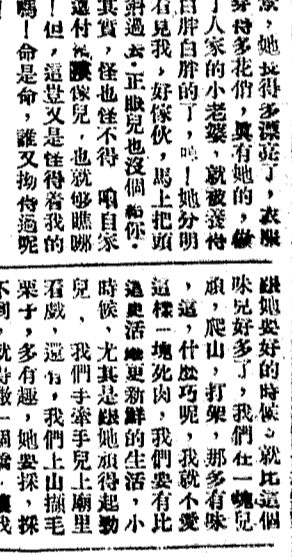 ，她長得多漂亮了，衣服
穿得多花俏，真有她的，做
了人家的小老婆，就被養得
白胖白胖的了，！她分明
看見我，好傢伙，馬上把頭
斜過去，正眼兒也沒個給你。
其實，怪也怪不得，咱自家
這付像兒，也就够瞧哪
！但，這豈又是怪得着我的
嗎！命是命，誰又拗得過呢
跟她要好的時候，就比這個
味兒好多了，我們在一塊兒
頑，爬山，打架，那多有味
，這，什麽巧呢，我就不愛
這樣一塊死肉，我們要有比
這更活更新鮮的生活，小
時候，尤其是跟她頑得起勁
兒，我們手牽手兒上廟里
看戲，還有，我們上山擷毛
栗子，多有趣，她要採，採
不到，就得做一個橋，讓我